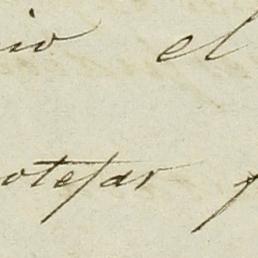 io el
otejar